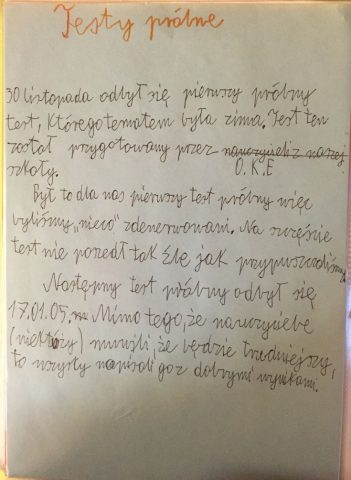 Testy próbne
30 listopada odbył się pierwszy próbny
test, którego tematem była zima. Test ten
został przygotowany przez nauczycieli z naszej
O.K.E
szkoły.
Był to dla nas pierwszy test próbny więc
byliśmy „nieco" zdenerwowani. Na szczęście
test nie poszedł tak źle jak przypuszczaliśmy.
Następny test próbny odbył się
17.01.05, Mimo tego, że nauczyciele
(niektóży) mówili, że będzie trudniejszy,
to wszyscy napisali go z dobrymi wynikami.